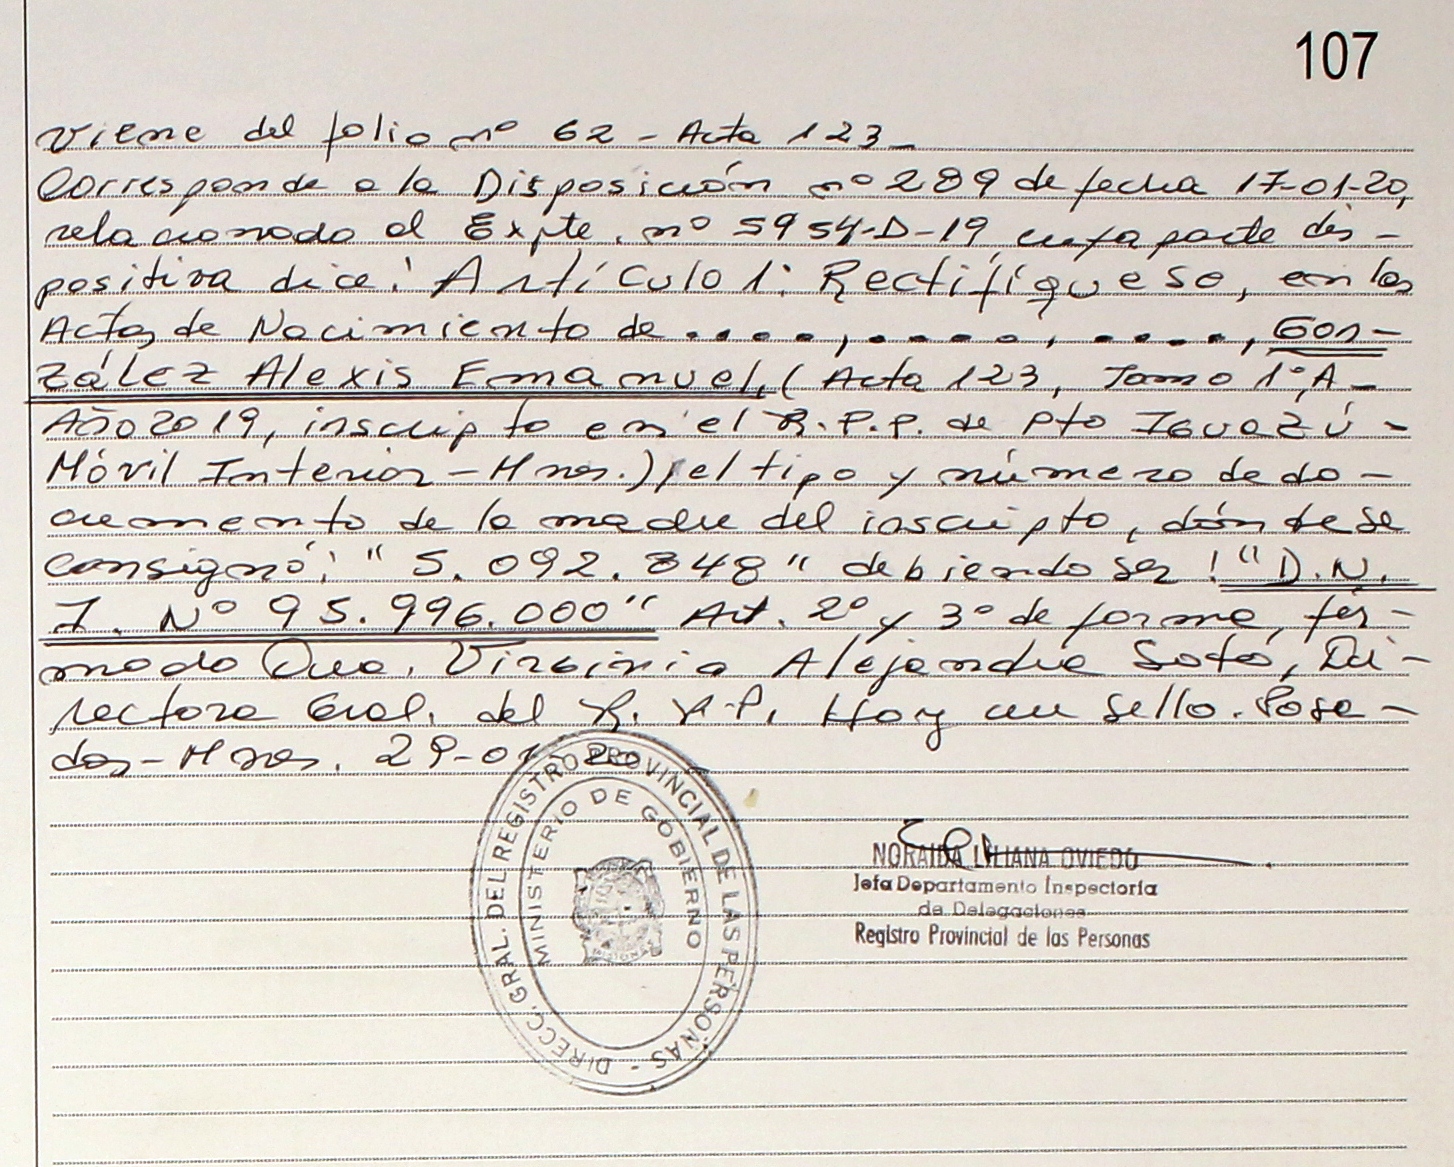 107
Viene del folio nº 62 - Acta 123_
Corresponde a la Disposición nº 289 de fecha 17-01-20,
relacionado al Expte. nº 5954-D-19 cuya parte dis-
positiva dice: Artículo 1: Rectifíquese, en las
Actas de Nacimiento de . . . . , . . . . , . . . . , Gon-
zález Alexis Emanuel, (Acta 123, Tomo 1º, A-
Año 2019, inscripto en el R.P.P. de Pto Iguazú -
Móvil Interior - Mnes.), el tipo y número de do-
cumento de la madre del inscripto, dónde se
consignó: " 5.092.848 " debiendo ser: "D.N.
I. Nº 95.996.000" Art. 2º y 3º de forma, fir-
mado Dra. Virginia Alejandra Soto, Di-
rectora Gral. del R.P.P. Hay un sello. Posa-
das - Mnes. 29-01-20
DIRECC. GRAL. DEL REGISTRO PROVINCIAL DE LAS PERSONAS -
MINISTERIO DE GOBIERNO
MISIONES
NORAIDA LILIANA OVIEDO
Jefa Departamento Inspectoría
de Delegaciones
Registro Provincial de las Personas